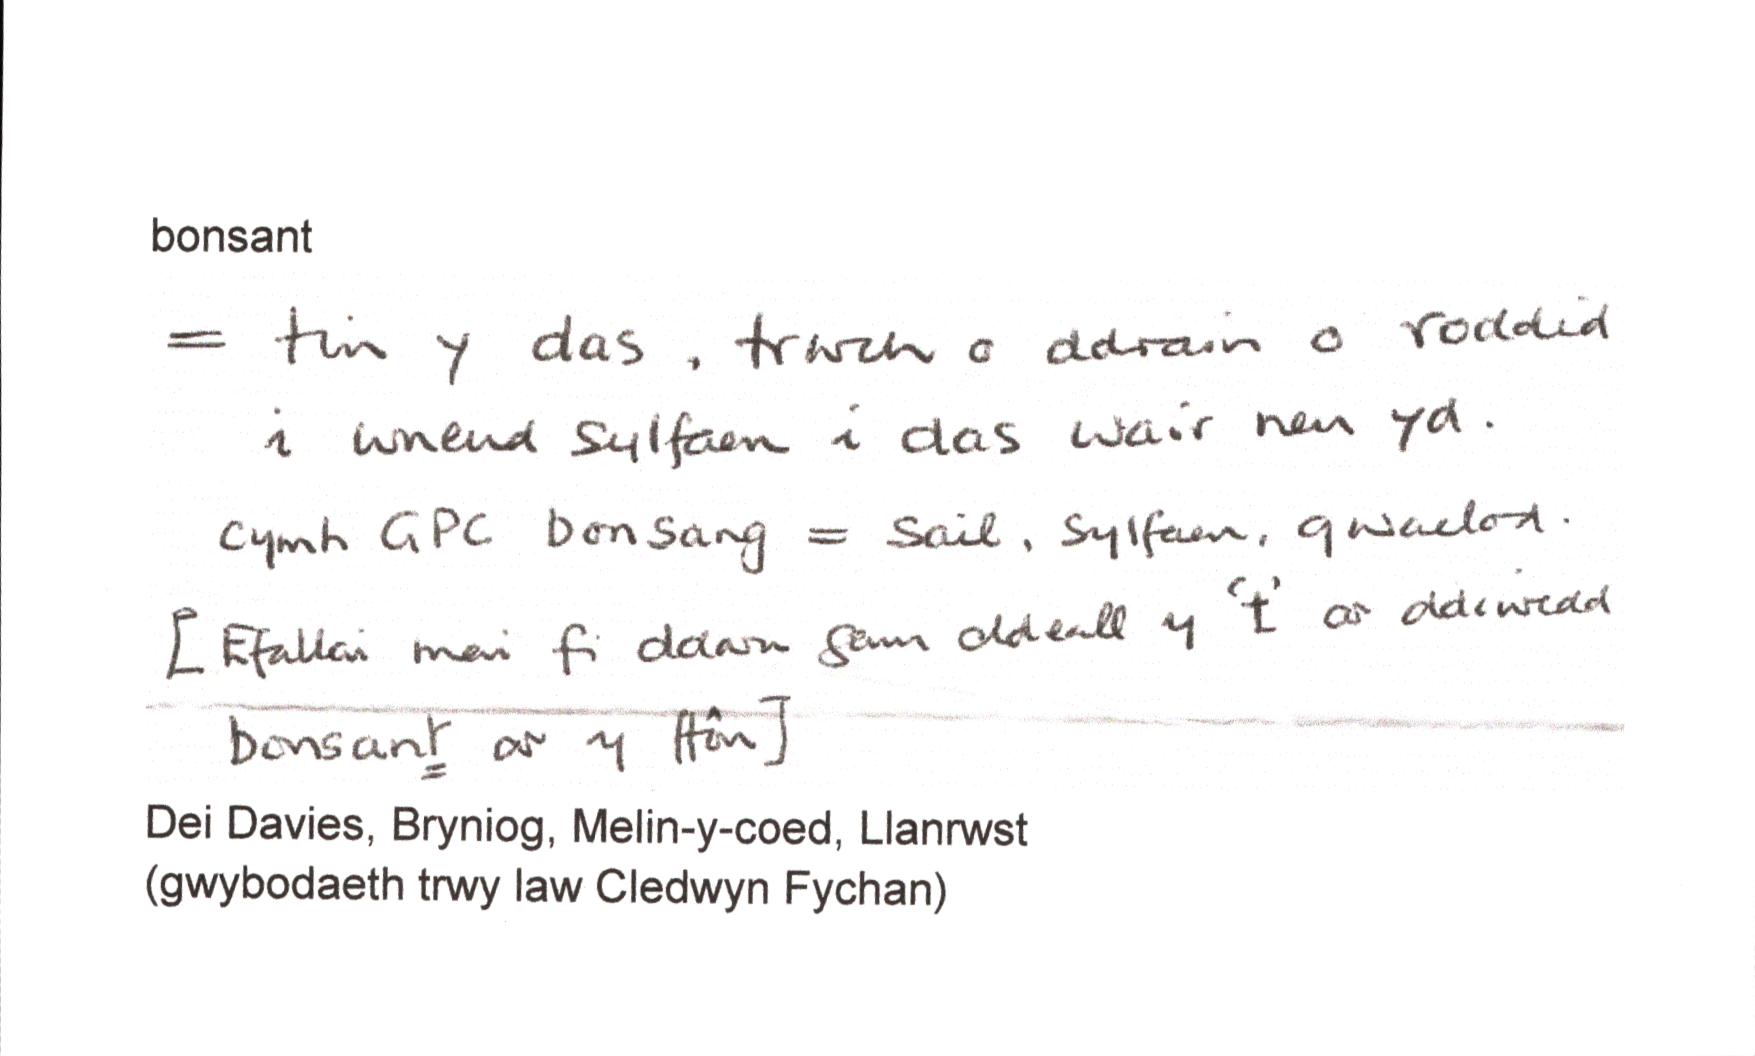 bonsant
= tin y das, trwch o ddrain o roddid
i wneud sylfaen i das wair neu yd.
cymh GPC bonsang = sail, sylfaen, gwaelod.
[Efallai mai fi ddaru gam ddeall y 't' ar ddiwedd
bonsant ar y ffôn]
Dei Davies, Bryniog, Melin-y-coed, Llanrwst
(gwybodaeth trwy law Cledwyn Fychan)